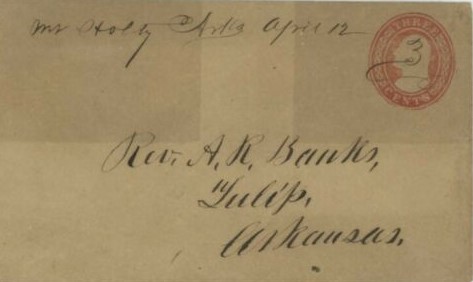 Mt Holly Arks April 12
THREE
3
CENTS
Rev. A. R. Banks,
Tulip,
Arkansas.